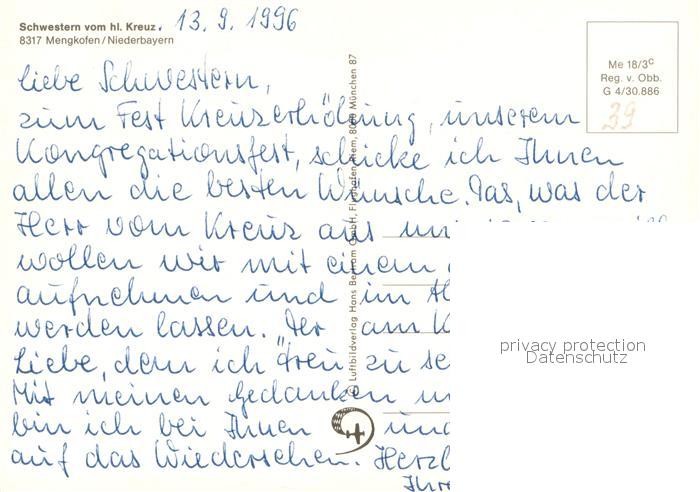 Schwestern vom hl. Kreuz. 13.9.1996
8317 Mengkofen/Niederbayern
Me 18/3c
Reg. v. Obb.
G 4/30.886
39
liebe Schwestern,
zum Fest Kreuzerhöhung, unserem
Kongregationsfest, schicke ich Ihnen
allen die besten Wünsche. Das, was der
Herr vom Kreuz aus
wollen wir mit einem
aufnehmen und im
werden lassen. Der am
Liebe, dem ich Treu zu
Mit meinen Gedanken
bin ich bei Ihnen und
auf das Wiedersehen. Herzl
Ihre
© Luftbildverlag Hans Bertram GmbH, Flughafen Riem, 8000 München 87
privacy protection
Datenschutz